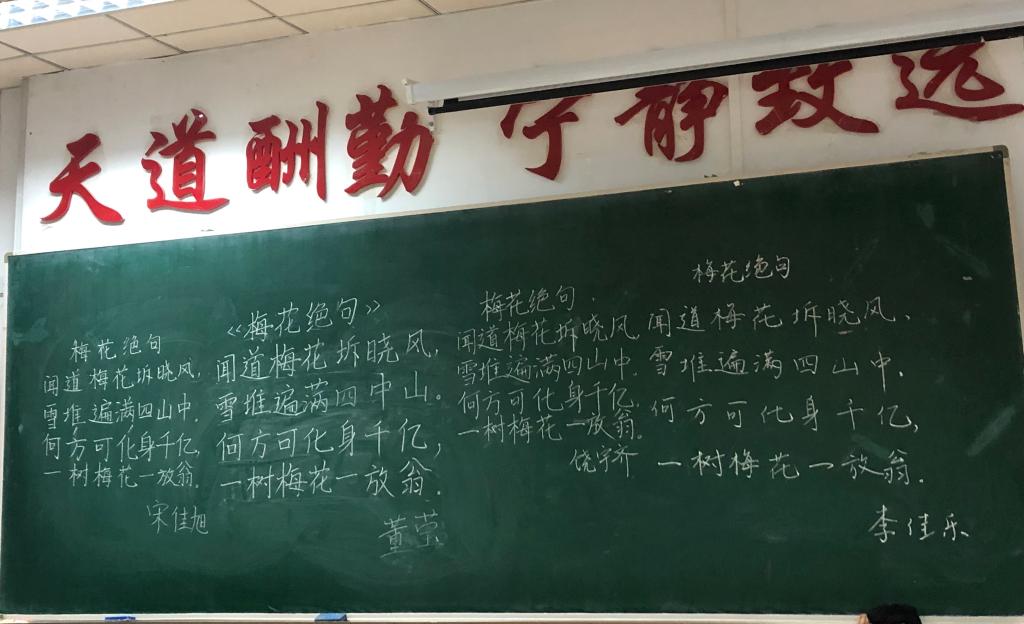 天道酬勤 宁静致远
梅花绝句
闻道梅花坼晓风,
雪堆遍满四山中.
何方可化身千亿,
一树梅花一放翁.
宋佳旭
《梅花绝句》
闻道梅花坼晓风,
雪堆遍满四中山。
何方可化身千亿,
一树梅花一放翁.
董莹
梅花绝句.
闻道梅花坼晓风,
雪堆遍满四山中.
何方可化身千亿,
一树梅花一放翁.
饶宇齐
梅花绝句
闻道梅花坼晓风、
雪堆遍满四山中.
何方可化身千亿,
一树梅花一放翁.
李佳乐